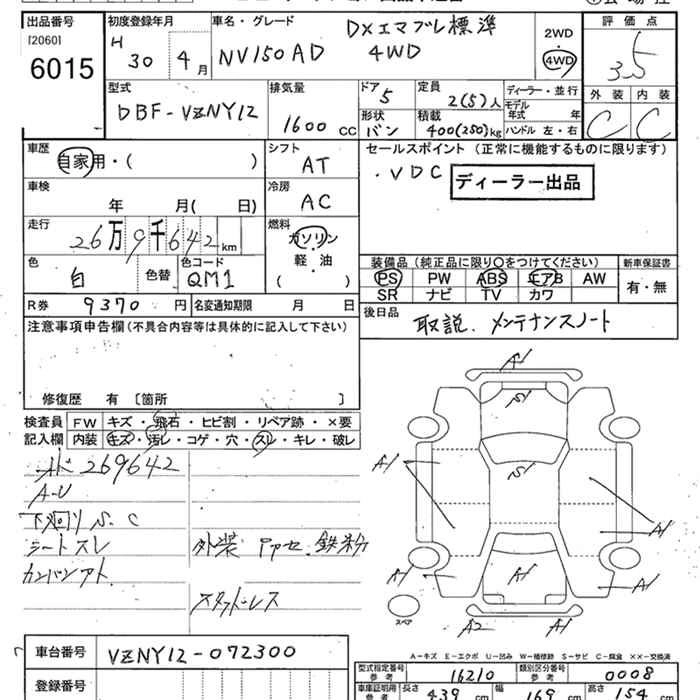 出品番号 初度登録年月 車名・グレード 評価点
[2060]
6015
H 30 4月
NV150AD
DXエマブレ標準
4WD
2WD
4WD
3.5
外装 内装
C C
型式
DBF-VZNY12
排気量
1600 CC
ドア 5
形状 バン
定員 2(5)人
積載 400(250)kg
ディーラー・並行
モデル年式 年
ハンドル 左・右
車歴
自家用・( )
シフト
AT
セールスポイント (正常に機能するものに限ります)
・VDC ディーラー出品
車検
年 月( 日)
冷房
AC
走行
26万9千642km
燃料
ガソリン
軽・油
( )
色
白
色替
色コード
QM1
装備品(純正品に限り○をつけてください) 新車保証書
PS PW ABS エアB AW
SR ナビ TV カワ
有・無
R券 9370円
名変通知期限 月 日
後日品 取説、メンテナンスノート
注意事項申告欄(不具合内容等は具体的に記入して下さい)
修復歴 有 〔箇所 〕
検査員記入欄
FW キズ・飛石・ヒビ割・リペア跡・×要
内装 キズ・汚レ・コゲ・穴・スレ・キレ・破レ
269642
A-U
下廻リ S.C
シートスレ
カンバンアト
外装 鉄粉
スタッドレス
A1
S1
A1
S1
A1
A1
A1
A1
A1
A2
A1
スペア
A-キズ E-エクボ U-凹み W-補修跡 S-サビ C-腐食 XX-交換済
車台番号 VZNY12-072300
登録番号
型式指定番号 参考 16210
類別区分番号 参考 0008
車庫証明用 参考
長さ 439 cm
幅 169 cm
高さ 154 cm